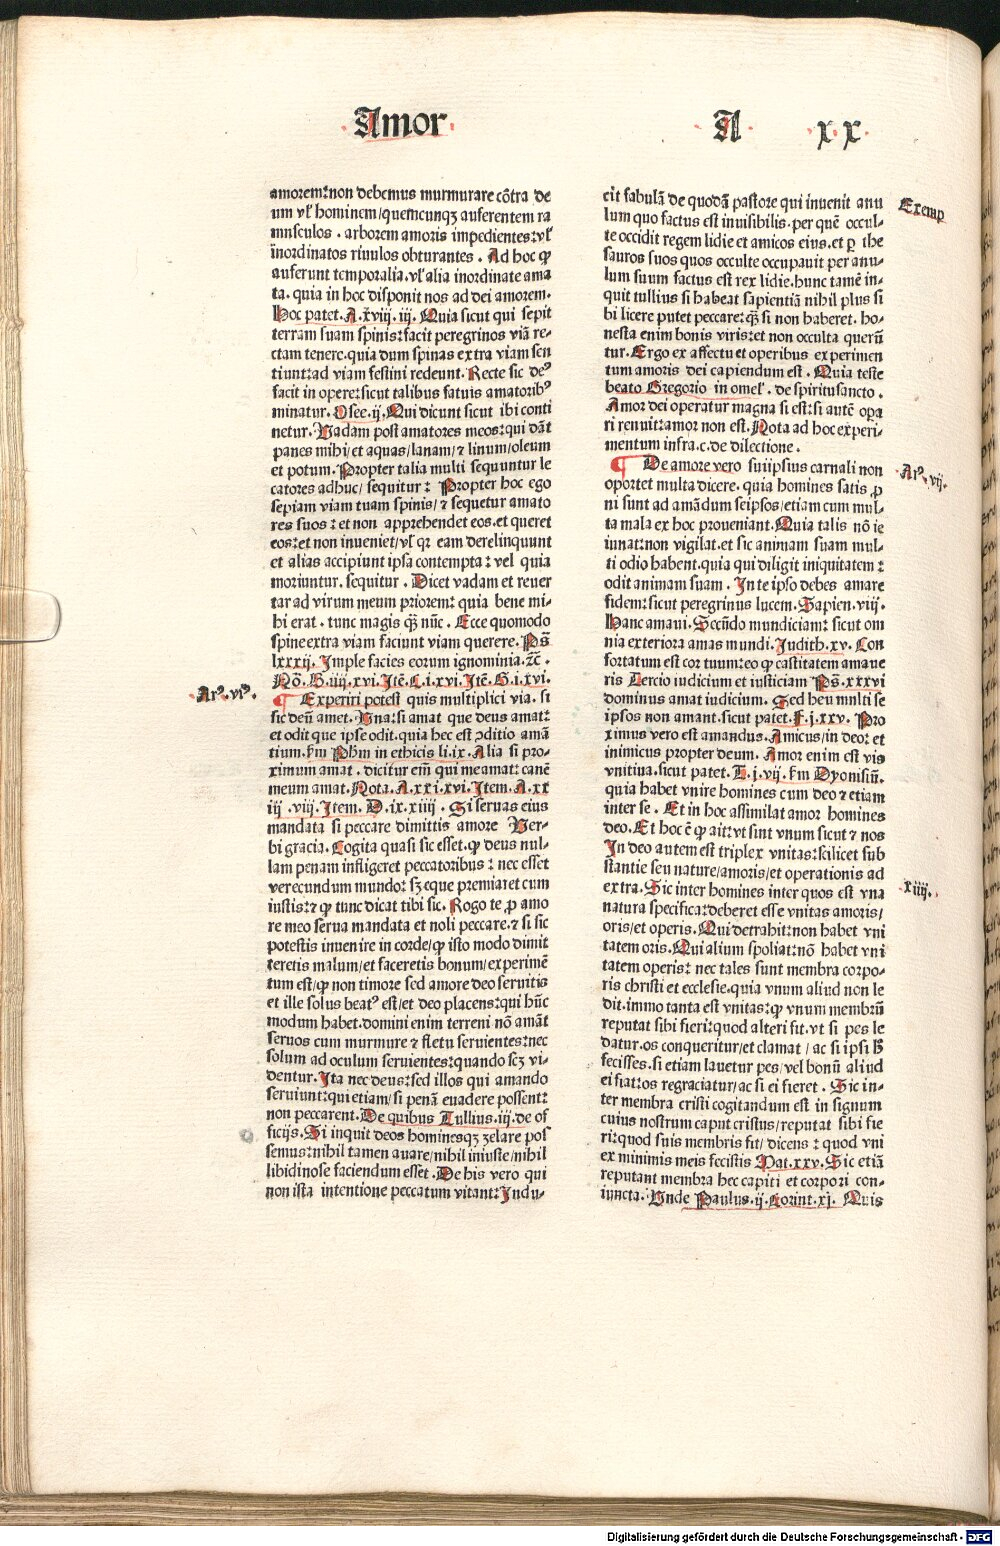 Amor
A xx
amorem: non debemus murmurare cõtra de
um vl' hominem/quemcunqȝ auferentem ra
musculos . arborem amoris impedientes: vl'
īnordinatos riuulos obturantes . Ad hoc ꝙ
auferunt temporalia. vl' alia inordinate ama
ta. quia in hoc disponit nos ad dei amorem.
Hoc patet. A.xviij.iij. Quia sicut qui sepit
terram suam spinis: facit peregrinos viã re-
ctam tenere. quia dum spinas extra viam sen
tiunt: ad viam festini redeunt. Recte sic de⁹
facit in opere: sicut talibus fatuis amatorib⁹
minatur. Osee.ij. Qui dicunt sicut ibi conti
netur. Uadam post amatores meos: qui dãt
panes mihi/et aquas/lanam/⁊ linum/oleum
et potum. Propter talia multi sequuntur le
catores adhuc/sequitur: Propter hoc ego
sepiam viam tuam spinis/⁊ sequetur amato
res suos: et non apprehendet eos. et queret
eos: et non inueniet/vl' qꝛ eam derelinquunt
et alias accipiunt ipsa contempta: vel quia
moriuntur. sequitur . Dicet vadam et reuer
tar ad virum meum priorem: quia bene mi-
hi erat . tunc magis ꝙ̃ nũc. Ecce quomodo
spine extra viam faciunt viam querere. Ps̃
lxxxij. Imple facies eorum ignominia. ⁊c̃.
Nõ. G.iiij.xvi. Itẽ. C.i.xvi. Itẽ. G.i.xvi.
Ar⁹. vi⁹.
¶ Experiri potest quis multiplici via. si
sic deũ amet. Una: si amat que deus amat:
et odit que ipse odit. quia hec est ꝯditio amã
tium. ẜm Ph̃m in ethicis li.ix. Alia si pro-
ximum amat . dicitur em̃ qui me amat: canẽ
meum amat. Nota. A.xxi.xvi. Item. A.xx
iij .vij. Item. D.ix.xiiij . Si seruas eius
mandata si peccare dimittis amore Uer-
bi gracia. Cogita quasi sic esset. ꝙ deus nul-
lam penam infligeret peccatoribus: nec esset
verecundum mundo: sȝ eque premiaret cum
iustis: ⁊ ꝙ tunc dicat tibi sic. Rogo te ꝓ amo
re meo serua mandata et noli peccare. ⁊ si sic
potestis inuenire in corde/ꝙ isto modo dimit
teretis malum/et faceretis bonum/experimẽ
tum est/ꝙ non timore sed amore deo seruitis
et ille solus beat⁹ est/et deo placens: qui hũc
modum habet. domini enim terreni nõ amãt
seruos cum murmure ⁊ fletu seruientes: nec
solum ad oculum seruientes: quando scȝ vi-
dentur. Ita nec deus: sed illos qui amando
seruiunt: qui etiam/si penã euadere possent:
non peccarent. De quibus Tullius.iij. de of
ficijs. Si inquit deos hominesqȝ zelare pos
semus: nihil tamen auare/nihil iniuste/nihil
libidinose faciendum esset. De his vero qui
non ista intentione peccatum vitant: Indu-
cit fabulã de quodã pastore qui inuenit anu
Exemp
lum quo factus est inuisibilis. per quẽ occul-
te occidit regem lidie et amicos eius. et ꝑ the
sauros suos quos occulte occupauit per anu-
lum suum factus est rex lidie. hunc tamẽ in-
quit tullius si habeat sapientiã nihil plus si
bi licere putet peccare: ꝙ̃ si non haberet. ho-
nesta enim bonis viris: et non occulta querũ
tur. Ergo ex affectu et operibus experimen
tum amoris dei capiendum est . Quia teste
beato Gregorio in omel'. de spiritusancto .
Amor dei operatur magna si est: si autẽ opa
ri renuit: amor non est. Nota ad hoc experi-
mentum infra.c. de dilectione .
¶ De amore vero suiipsius carnali non
Ar⁹. vij.
oportet multa dicere. quia homines satis ꝓ
ni sunt ad amãdum seipsos/etiam cum mul-
ta mala ex hoc proueniant. Quia talis nõ ie
iunat: non vigilat. et sic animam suam mul-
ti odio habent. quia qui diligit iniquitatem:
odit animam suam. In te ipso debes amare
fidem: sicut peregrinus lucem. Sapien.viij.
Hanc amaui. Secũdo mundiciam: sicut om
nia exteriora amas mundi. Judith.xv. Con
fortatum est cor tuum: eo ꝙ castitatem amaue
ris Tercio iudicium et iusticiam Ps̃.xxxvi
dominus amat iudicium. Sed heu multi se
ipsos non amant. sicut patet. F.j.xxv. Pro
ximus vero est amandus. Amicus/in deo: et
inimicus propter deum. Amor enim est vis
vnitiua. sicut patet. H.j.vij. ẜm Dyonisiũ.
quia habet vnire homines cum deo ⁊ etiam
inter se . Et in hoc assimilat amor homines
deo. Et hoc ẽ ꝙ ait: vt sint vnum sicut ⁊ nos
In deo autem est triplex vnitas: scilicet sub
stantie seu nature/amoris/et operationis ad
extra. Sic inter homines inter quos est vna
xiiij.
natura specifica: deberet esse vnitas amoris/
oris/et operis. Qui detrahit: non habet vni
tatem oris. Qui alium spoliat: nõ habet vni
tatem operis: nec tales sunt membra corpo-
ris christi et ecclesie. quia vnum aliud non le
dit. immo tanta est vnitas: ꝙ vnum membrũ
reputat sibi fieri: quod alteri fit. vt si pes le
datur. os conqueritur/et clamat/ac si ipsi b̃
fecisses. si etiam lauetur pes/vel bonũ aliud
ei fiat: os regraciatur/ac si ei fieret . Sic in-
ter membra cristi cogitandum est in signum
cuius nostrum caput cristus/reputat sibi fie
ri: quod suis membris fit/dicens: quod vni
ex minimis meis fecistis Mat.xxv. Sic etiã
reputant membra hec capiti et corpori con-
iuncta. Unde Paulus.ij. Corint.xj. Quis
Digitalisierung gefördert durch die Deutsche Forschungsgemeinschaft - DFG